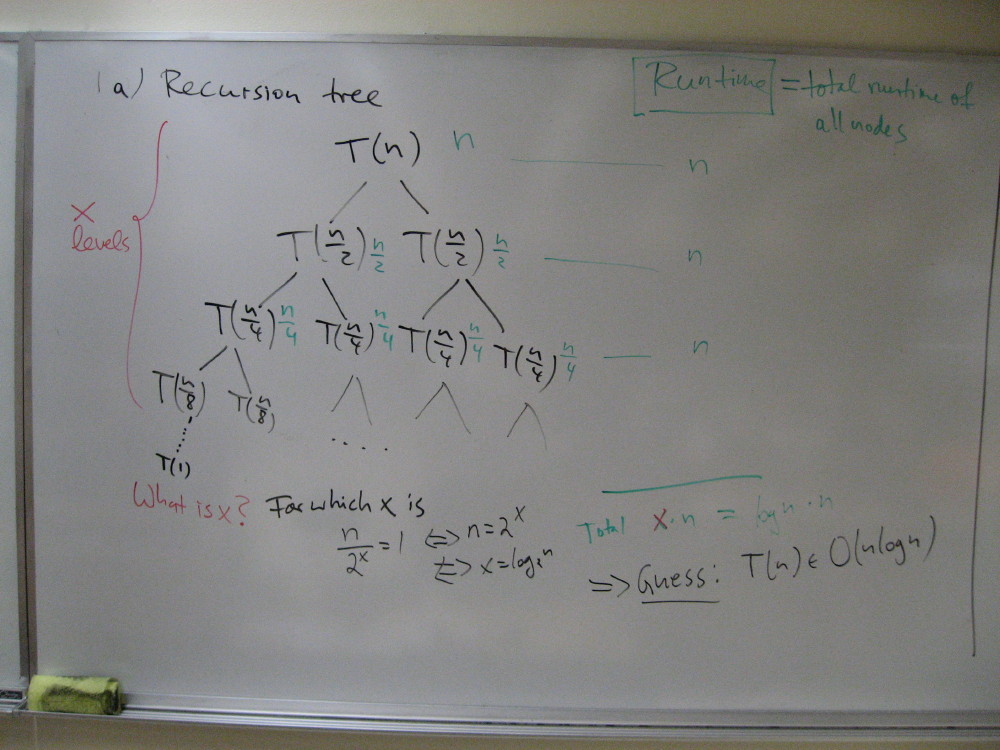 1a) Recursion tree
Runtime = total runtime of
all nodes
T(n) n — n
x
levels
T(n/2) n/2 T(n/2) n/2 — n
T(n/4) n/4 T(n/4) n/4 T(n/4) n/4 T(n/4) n/4 — n
T(n/8) T(n/8)
....
T(1)
What is x? For which x is
n/2^x = 1 <=> n = 2^x
<=> x = log₂ n
Total x·n = log n · n
=> Guess: T(n) ∈ O(n log n)